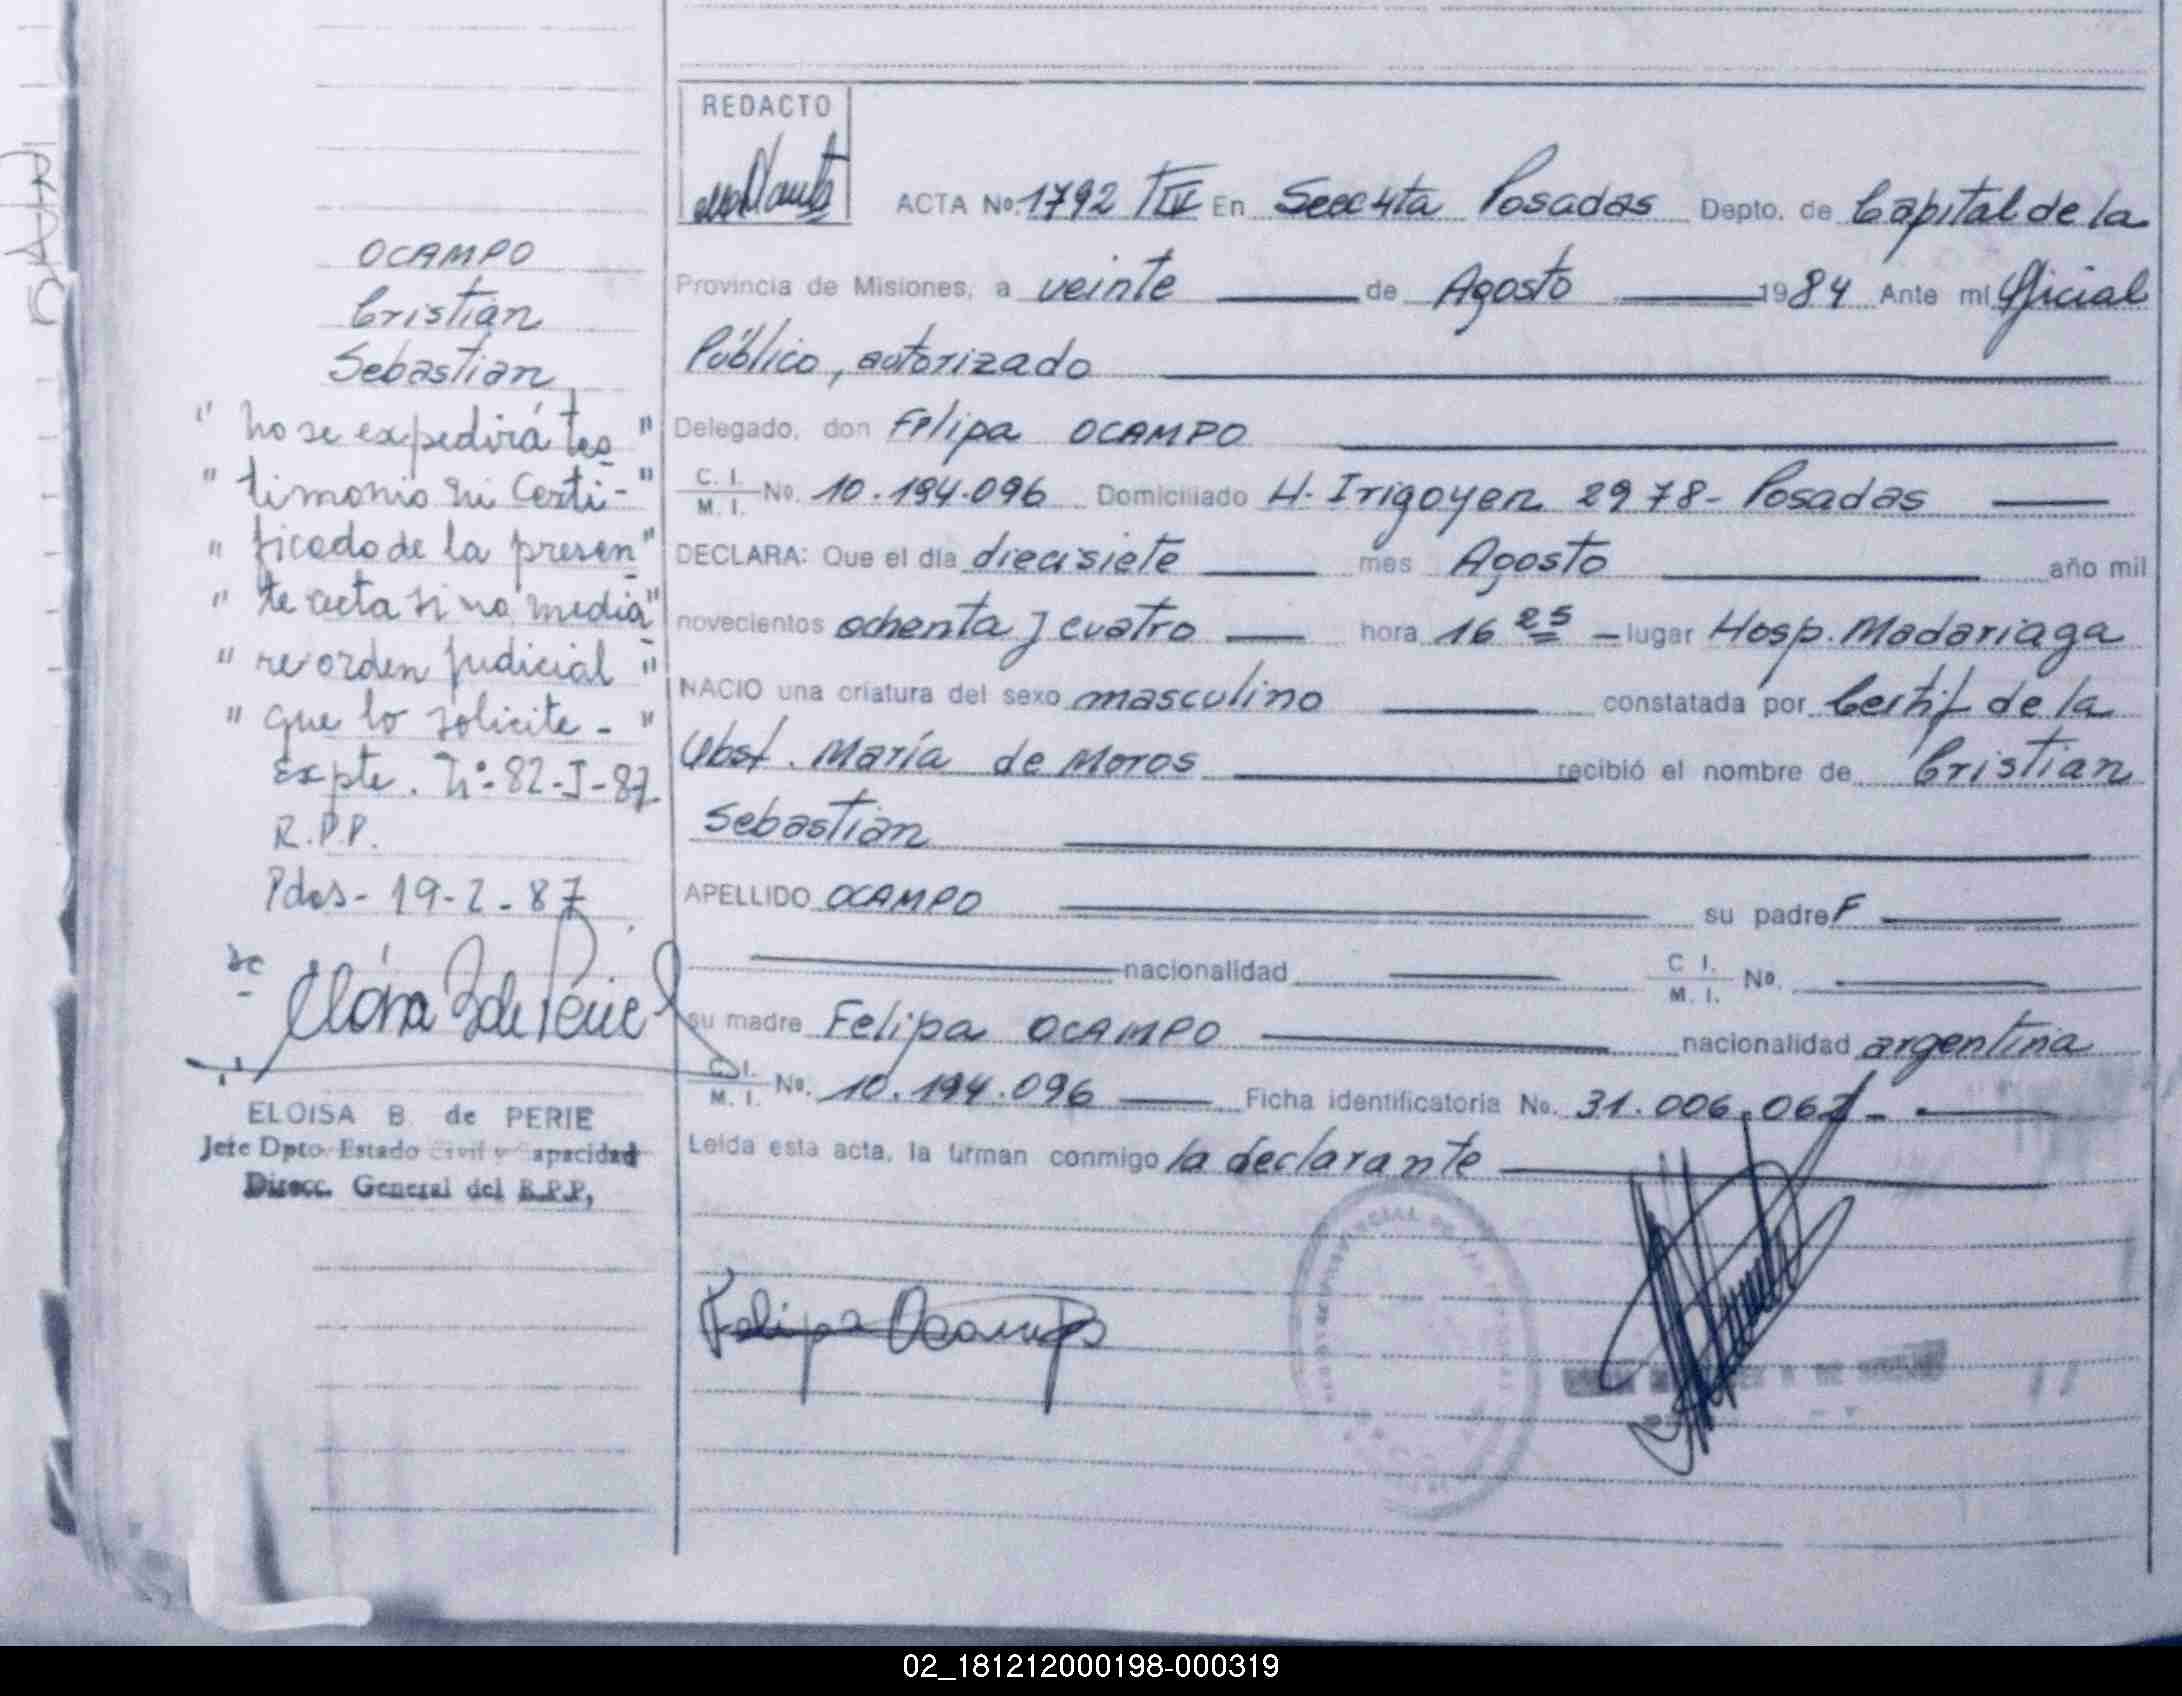 REDACTO
ACTA No. 1792 TIV En Secc 4ta Posadas Depto. de Capital de la
Provincia de Misiones, a veinte de Agosto 1984 Ante mi Oficial
Público, autorizado
Delegado, don Felipa OCAMPO
C. I. M. I. No. 10.194.096 Domiciliado H. Irigoyen 2978- Posadas
DECLARA: Que el día diecisiete mes Agosto año mil
novecientos ochenta y cuatro hora 16 25 lugar Hosp. Madariaga
NACIO una criatura del sexo masculino constatada por Certif de la
Obst. María de Moros recibió el nombre de Cristian
Sebastian
APELLIDO OCAMPO su padre F
nacionalidad C I. M. I. No.
su madre Felipa OCAMPO nacionalidad argentina
C. I. M. I. No. 10.194.096 Ficha identificatoria No. 31.006.062-
Leida esta acta, la firman conmigo la declarante
Felipa Ocampo
OCAMPO
Cristian
Sebastian
" No se expedirá tes "
" timonio ni Certi- "
" ficado de la presen "
" te acta si no media "
" re orden judicial "
" que lo solicite - "
Expte. Nº: 82-I-87.
R.P.P.
Pdas- 19-2-87
ELOISA B. de PERIE
Jefe Dpto. Estado Civil y Capacidad
Direcc. General del R.P.P,
02_181212000198-000319